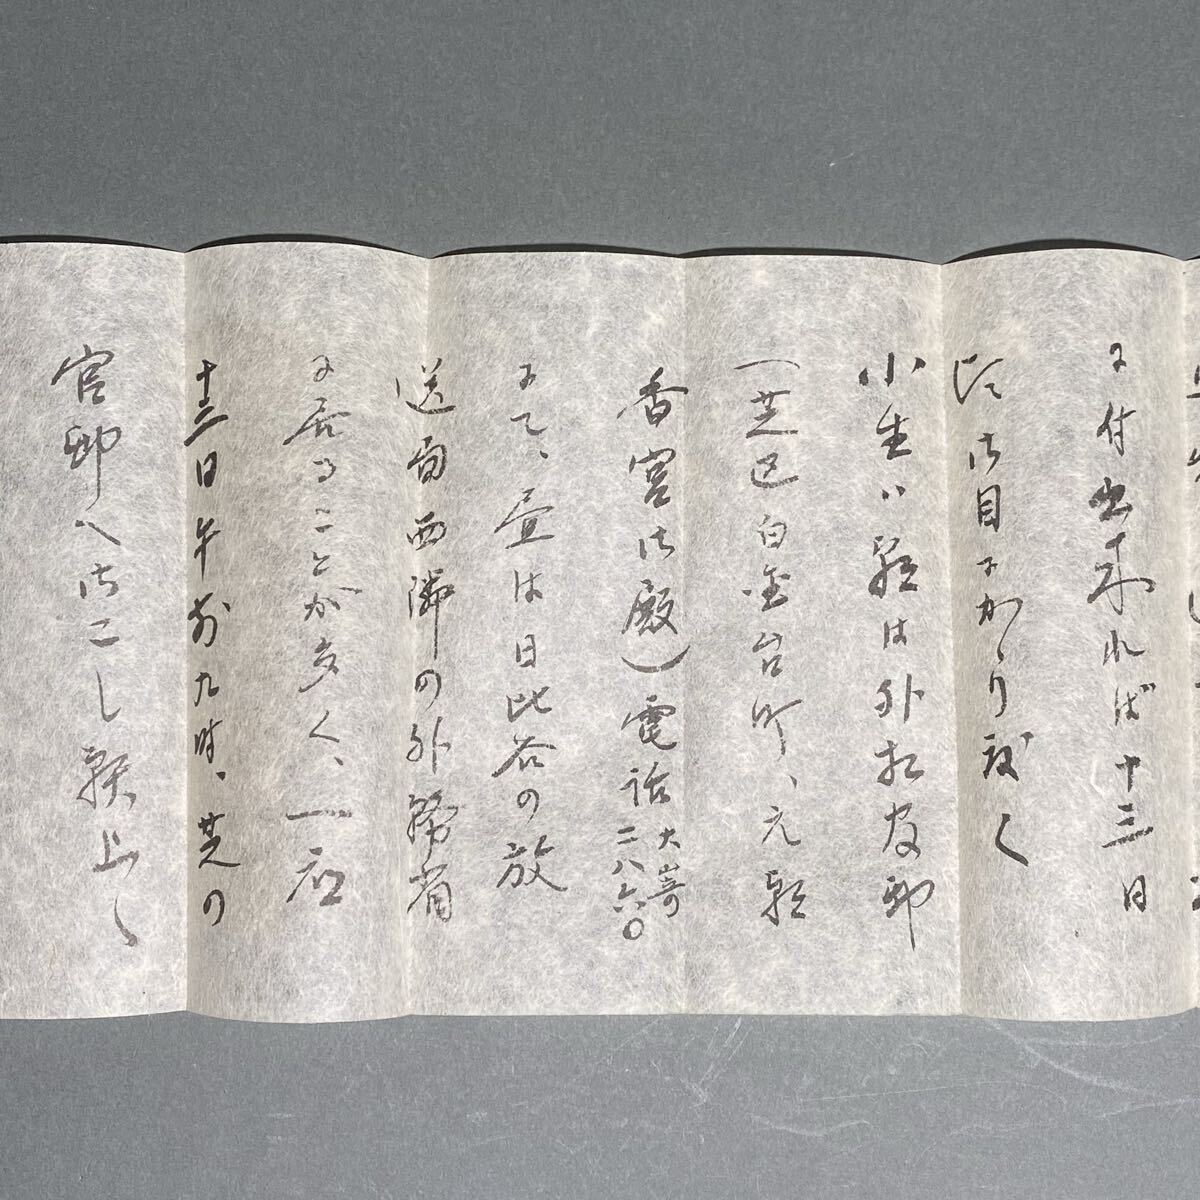 に付出来れば十三日
頃御目にかゝり度く
小生ハ朝は外相官邸
(芝区白金台町、元朝
香宮御殿)電話大崎二八六〇
にて、昼は日比谷の放
送局西隣の外務省
に居ることが多く、一応
十三日午前九時、芝の
官邸へ御こし願上く